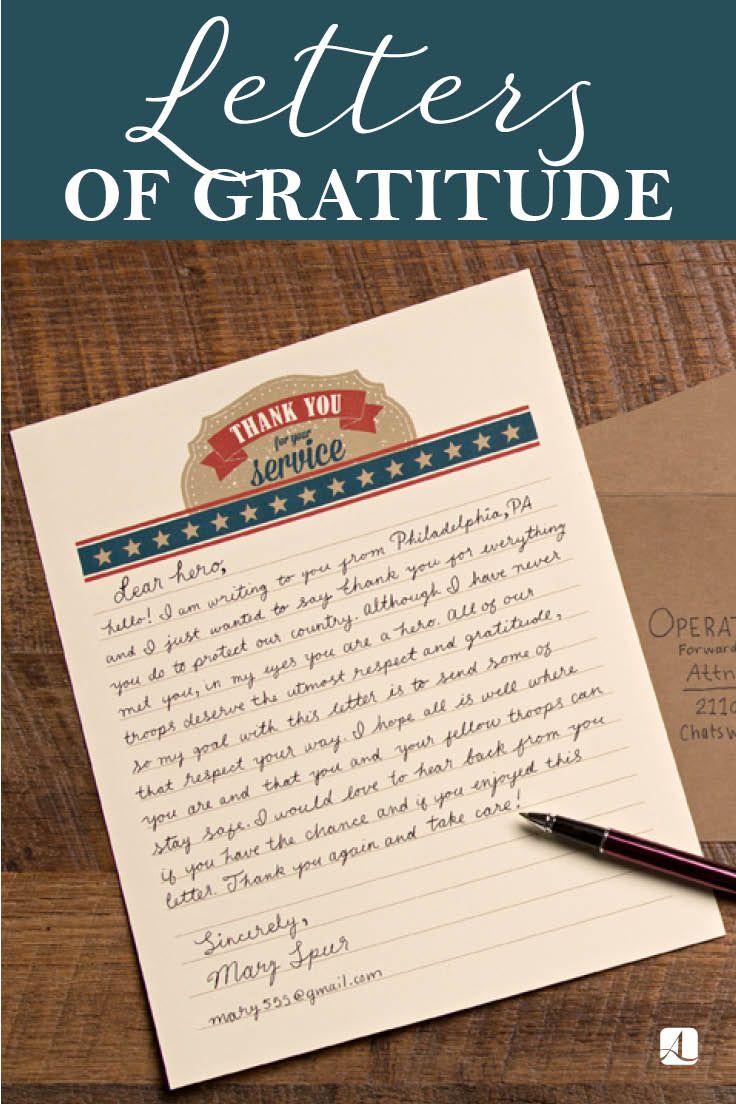 Letters
OF GRATITUDE
THANK YOU
for your
service
Dear hero,
hello! I am writing to you from Philadelphia, PA
and I just wanted to say thank you for everything
you do to protect our country. Although I have never
met you, in my eyes you are a hero. All of our
troops deserve the utmost respect and gratitude,
so my goal with this letter is to send some of
that respect your way. I hope all is well where
you are and that you and your fellow troops can
stay safe. I would love to hear back from you
if you have the chance and if you enjoyed this
letter. Thank you again and take care!
Sincerely,
Mary Spur
mary555@gmail.com
OPERAT
Forward
Attn
2110
Chatsw
A